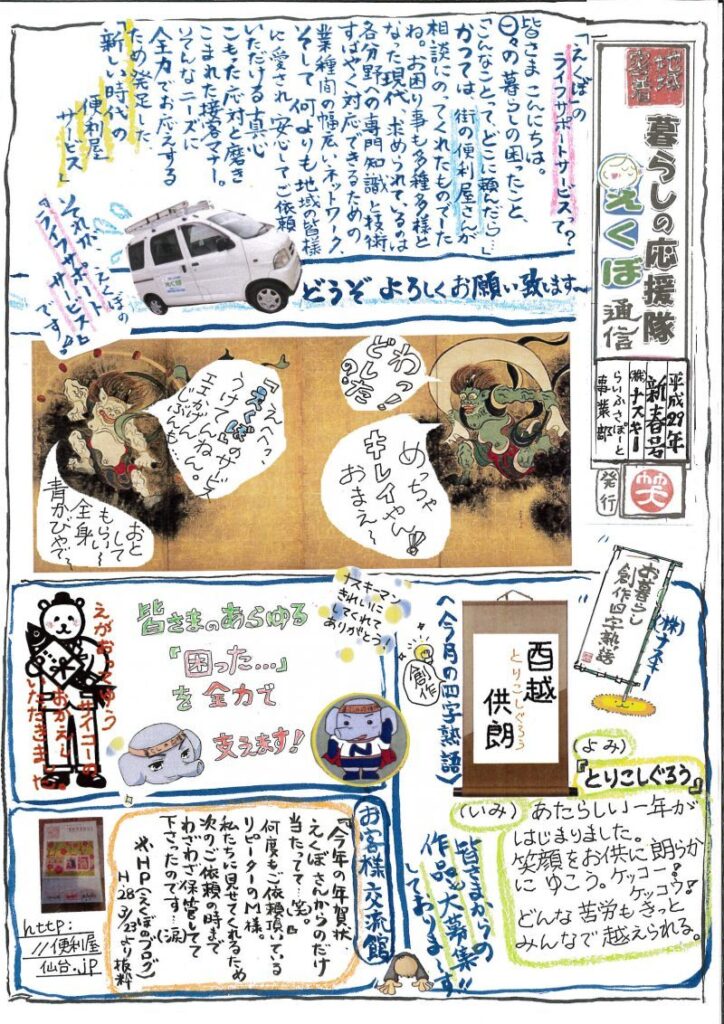 地域
密着
暮らしの応援隊
えくぼ通信
平成29年
新春号
㈱ナスキー
らいふさぽーと
事業部
発行
笑
「えくぼ」の
ライフサポートサービスって?
皆さまこんにちは。
日々の暮らしの困ったこと、
「こんなことって、どこに頼んだら…」
かつては街の便利屋さんが
相談にのってくれたものでした
ね。お困り事も多種多様と
なった現代、求められているのは
各分野への専門知識と技術、
すばやく対応できるための
業種間の幅広いネットワーク、
そして何よりも地域の皆様
に愛され、安心してご依頼
いただける真心
こもった応対と磨き
こまれた接客マナー。
そんなニーズに
全力でお応えする
ため発足した、
「新しい時代の
便利屋
サービス」
それが、えくぼの
『ライフサポート
サービス』
です!!
えくぼ
どうぞよろしくお願い致します〜
わっ!
どしたの?
めっちゃ
キレイやん!!
おまえ〜
「えへへっ、
『えくぼ』のサービス
うけてんねん。
玉がんじぶんも…
おと
して
もらい〜
全身
青かびやで〜
えがおってゆう
サイコーの
おかえし
いただきまする。
皆さまのあらゆる
「困った…」
を全力で
支えます!
ナスキーマン
きれいに
してくれて
ありがとう!
N
お暮らし
創作四字熟語
㈱ナスキー
〈今月の四字熟語〉
創作
酉越
とりこしぐろう
供朗
(よみ)
『とりこしぐろう』
(いみ) あたらしい一年が
はじまりました。
笑顔をお供に朗らか
にゆこう。ケッコー?
ケッコウ!
どんな苦労もきっと
みんなで越えられる。
皆さまからの
作品も大募集!!
しておりま〜す
お客様交流館
『今年の年賀状
えくぼさんからのだけ
当たって…(笑)』。
何度もご依頼頂いている
リピーターのM様。
私たちに見せてくれるため
次のご依頼の時まで
わざわざ保管してて
下さったのです…(涙)
※HP(えくぼのブログ)
H28 3/23より抜粋
http:
//便利屋
仙台.jp